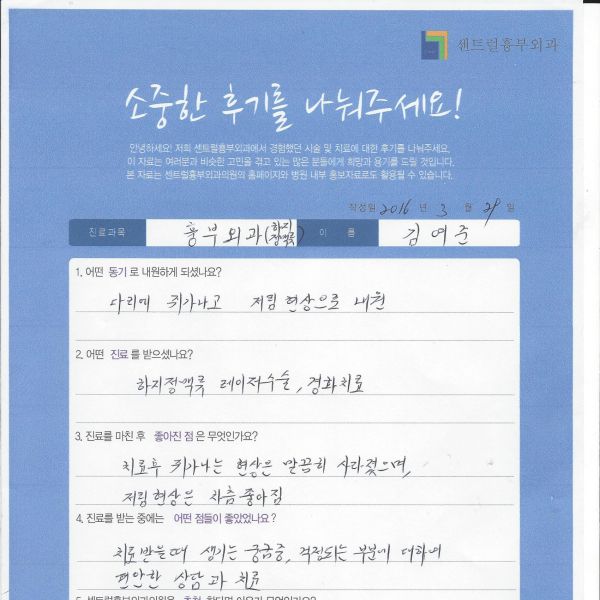 센트럴흉부외과
소중한 후기를 나눠주세요!
안녕하세요! 저희 센트럴흉부외과에서 경험했던 시술 및 치료에 대한 후기를 나눠주세요.
이 자료는 여러분과 비슷한 고민을 겪고 있는 많은 분들에게 희망과 용기를 드릴 것입니다.
본 자료는 센트럴흉부외과의원의 홈페이지와 병원 내부 홍보자료로도 활용될 수 있습니다.
작성일 2016 년 3 월 29 일
진료과목 흉부외과(하지정맥류) 이 름 김여준
1. 어떤 동기 로 내원하게 되셨나요?
다리에 쥐가나고 저림 현상으로 내원
2. 어떤 진료 를 받으셨나요?
하지정맥류 레이저수술, 경화치료
3. 진료를 마친 후 좋아진 점 은 무엇인가요?
치료후 쥐가나는 현상은 말끔히 사라졌으며,
저림현상은 차츰 좋아짐
4. 진료를 받는 중에는 어떤 점들이 좋았었나요?
치료받을때 생기는 궁금증, 걱정되는 부분에 대하여
편안한 상담과 치료
5. 센트럴흉부외과의원을 추천 한다면 이유가 무엇인가요?